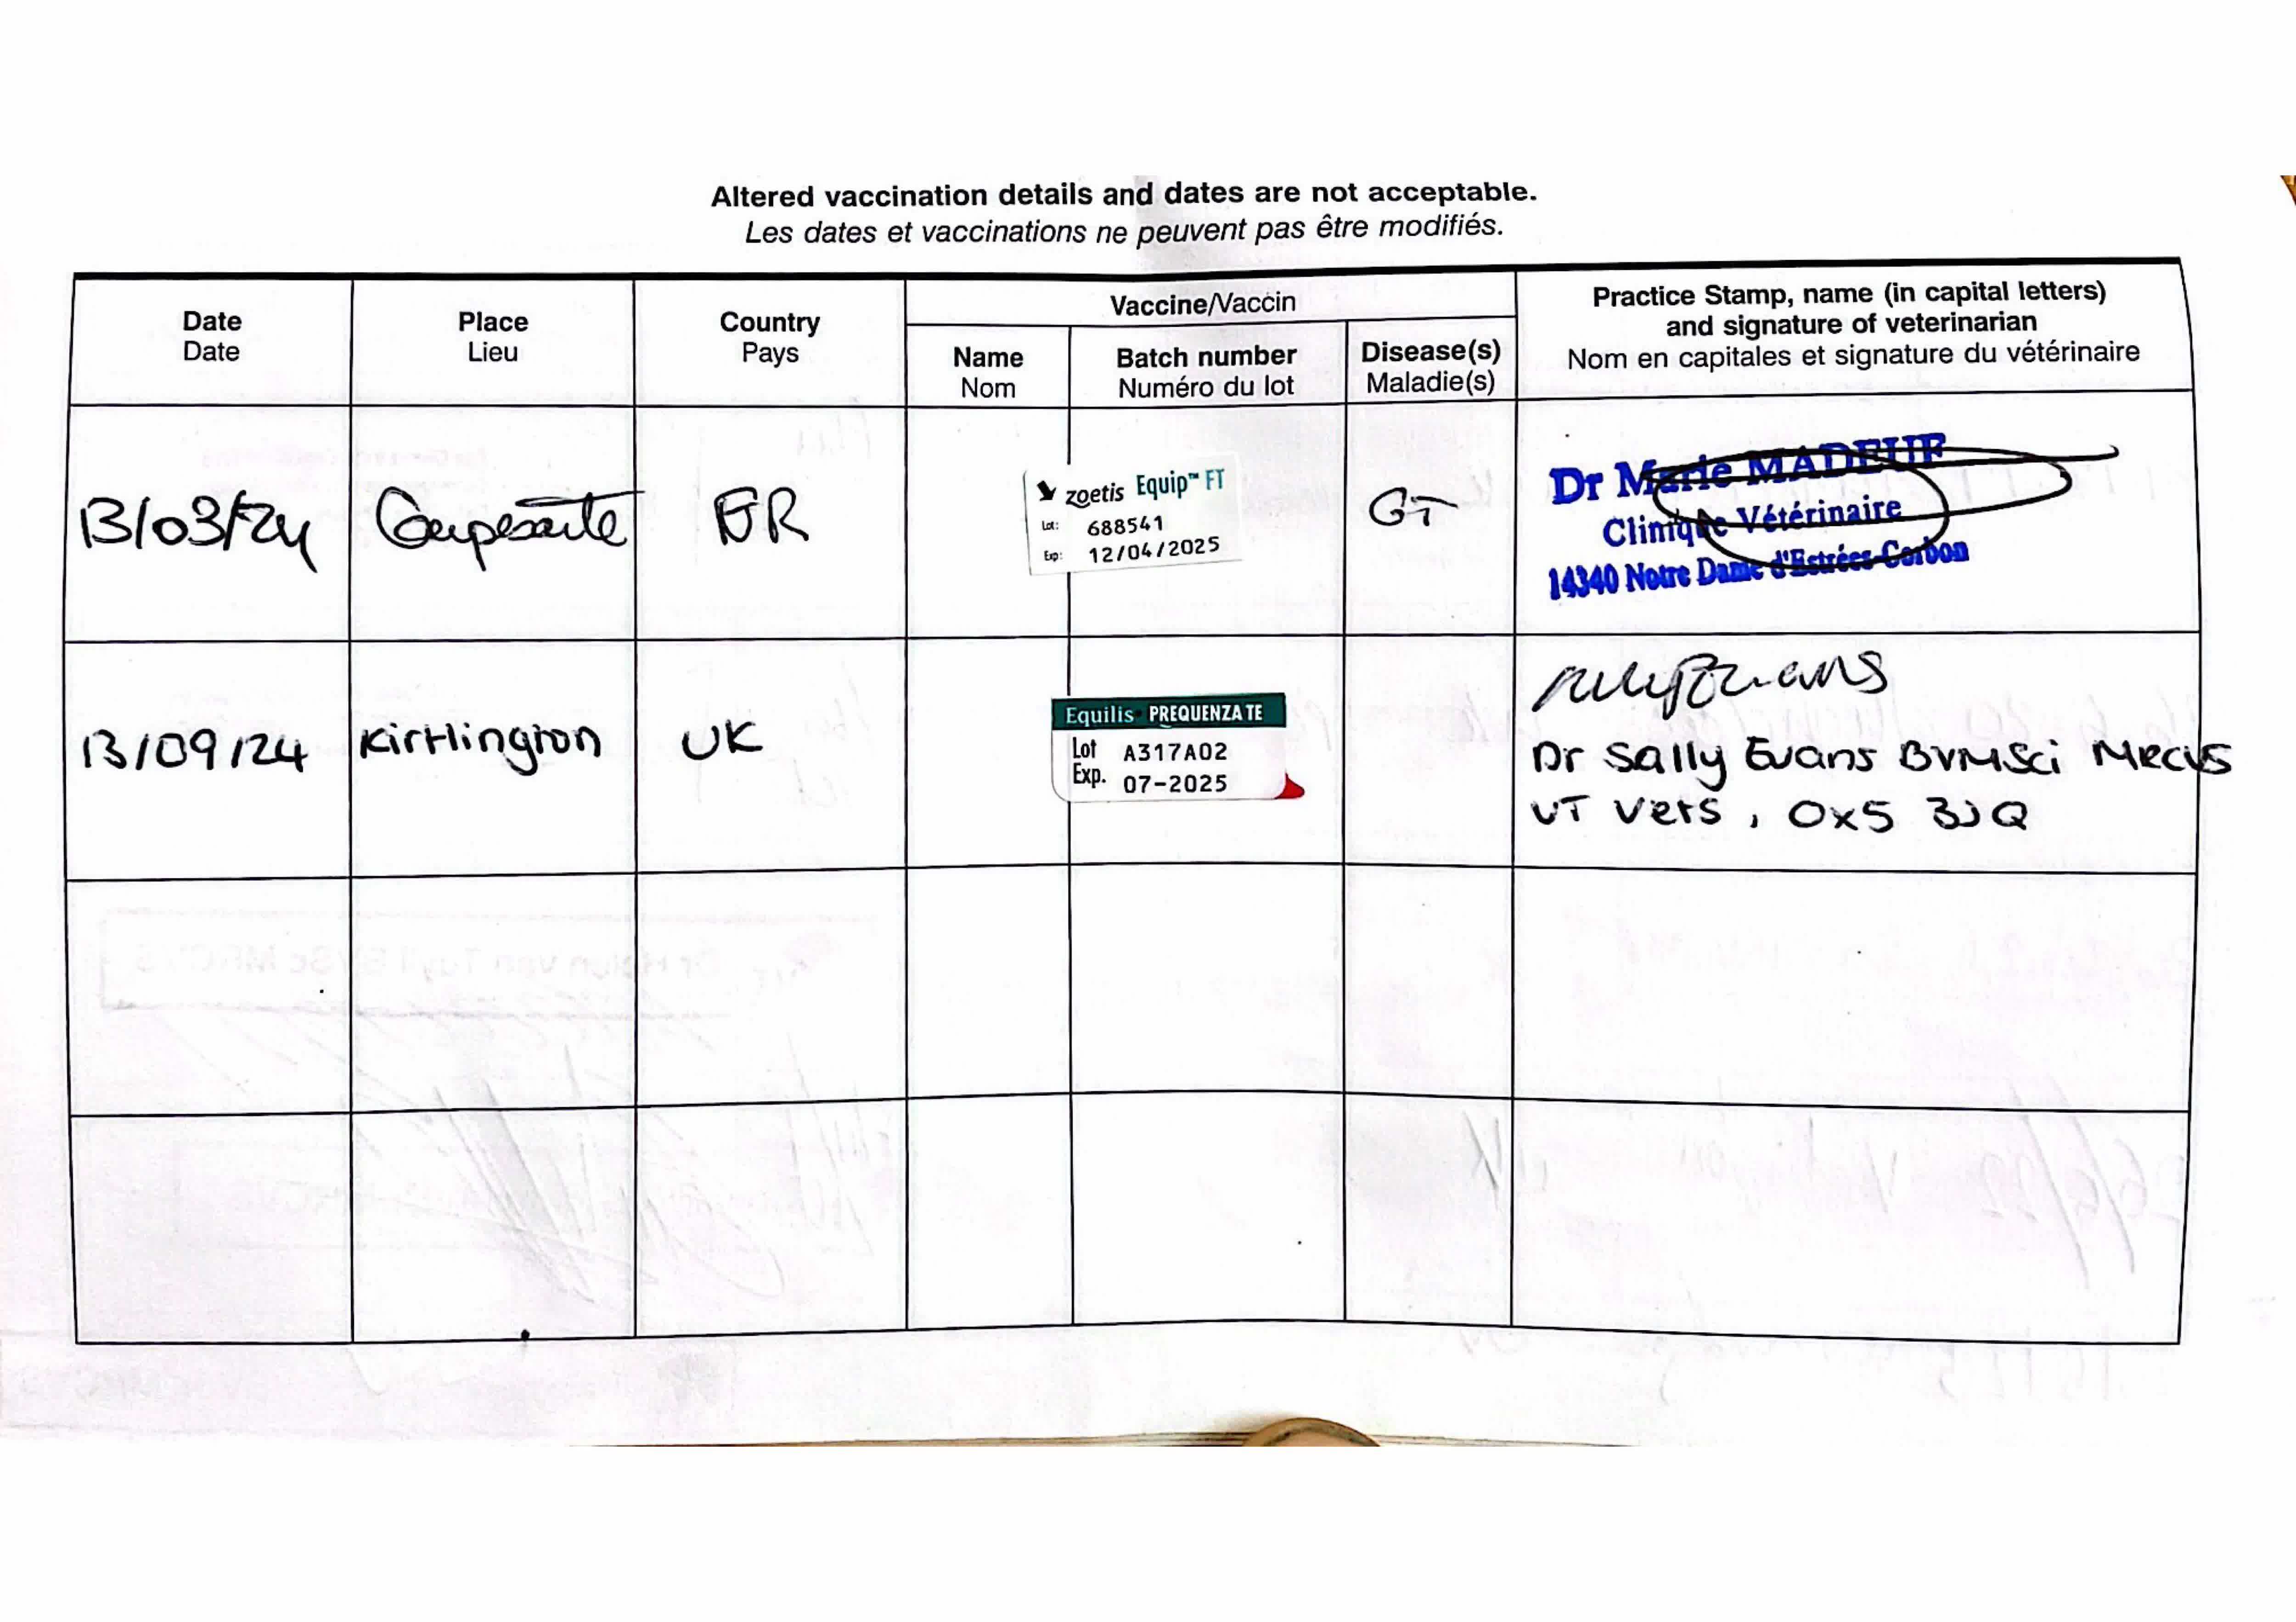 Altered vaccination details and dates are not acceptable.
Les dates et vaccinations ne peuvent pas être modifiés.
Date
Date
Place
Lieu
Country
Pays
Vaccine/Vaccin
Name
Nom
Batch number
Numéro du lot
Disease(s)
Maladie(s)
Practice Stamp, name (in capital letters)
and signature of veterinarian
Nom en capitales et signature du vétérinaire
13/03/24
FR
zoetis Equip™ FT
Lot: 688541
Exp: 12/04/2025
GT
Dr Marie MADEUF
Clinique Vétérinaire
14340 Notre Dame d'Estrées-Corbon
13/09/24
Kirtlington
UK
Equilis PREQUENZA TE
Lot A317A02
Exp. 07-2025
Dr Sally Evans BVMSci MRCVS
VT Vets, OX5 3JQ